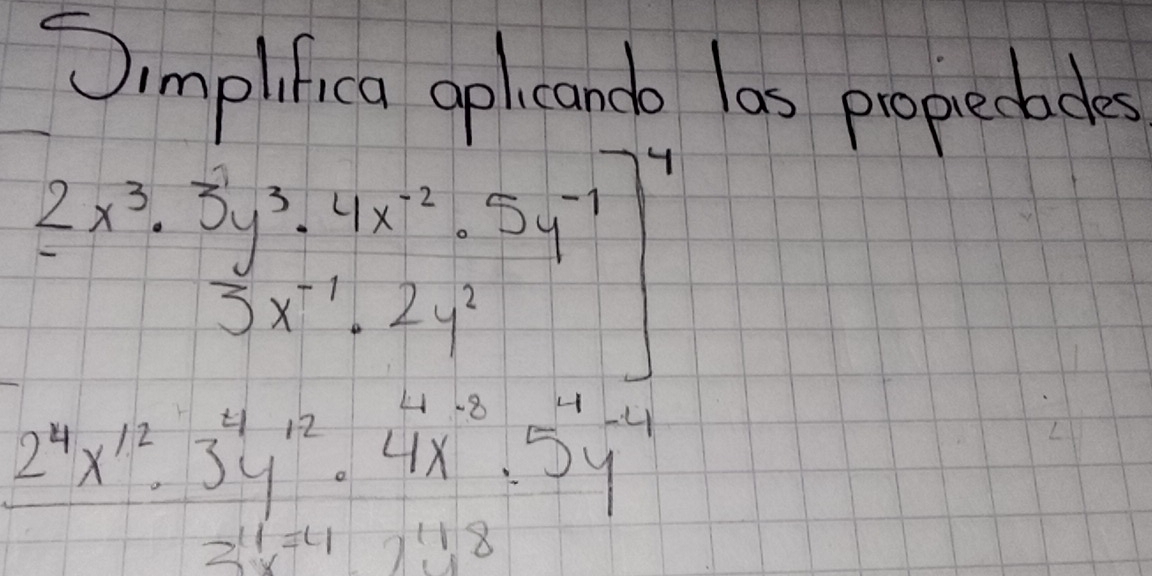 Simplifica aplicando las propiedades.
2x³ . 3y³ . 4x⁻² . 5y⁻¹ ]⁴
3x⁻¹ . 2y²
2⁴x¹² . 3⁴y¹² . 4⁴x⁻⁸ . 5⁴y⁻⁴
3⁴x⁻⁴ 2⁴y⁸